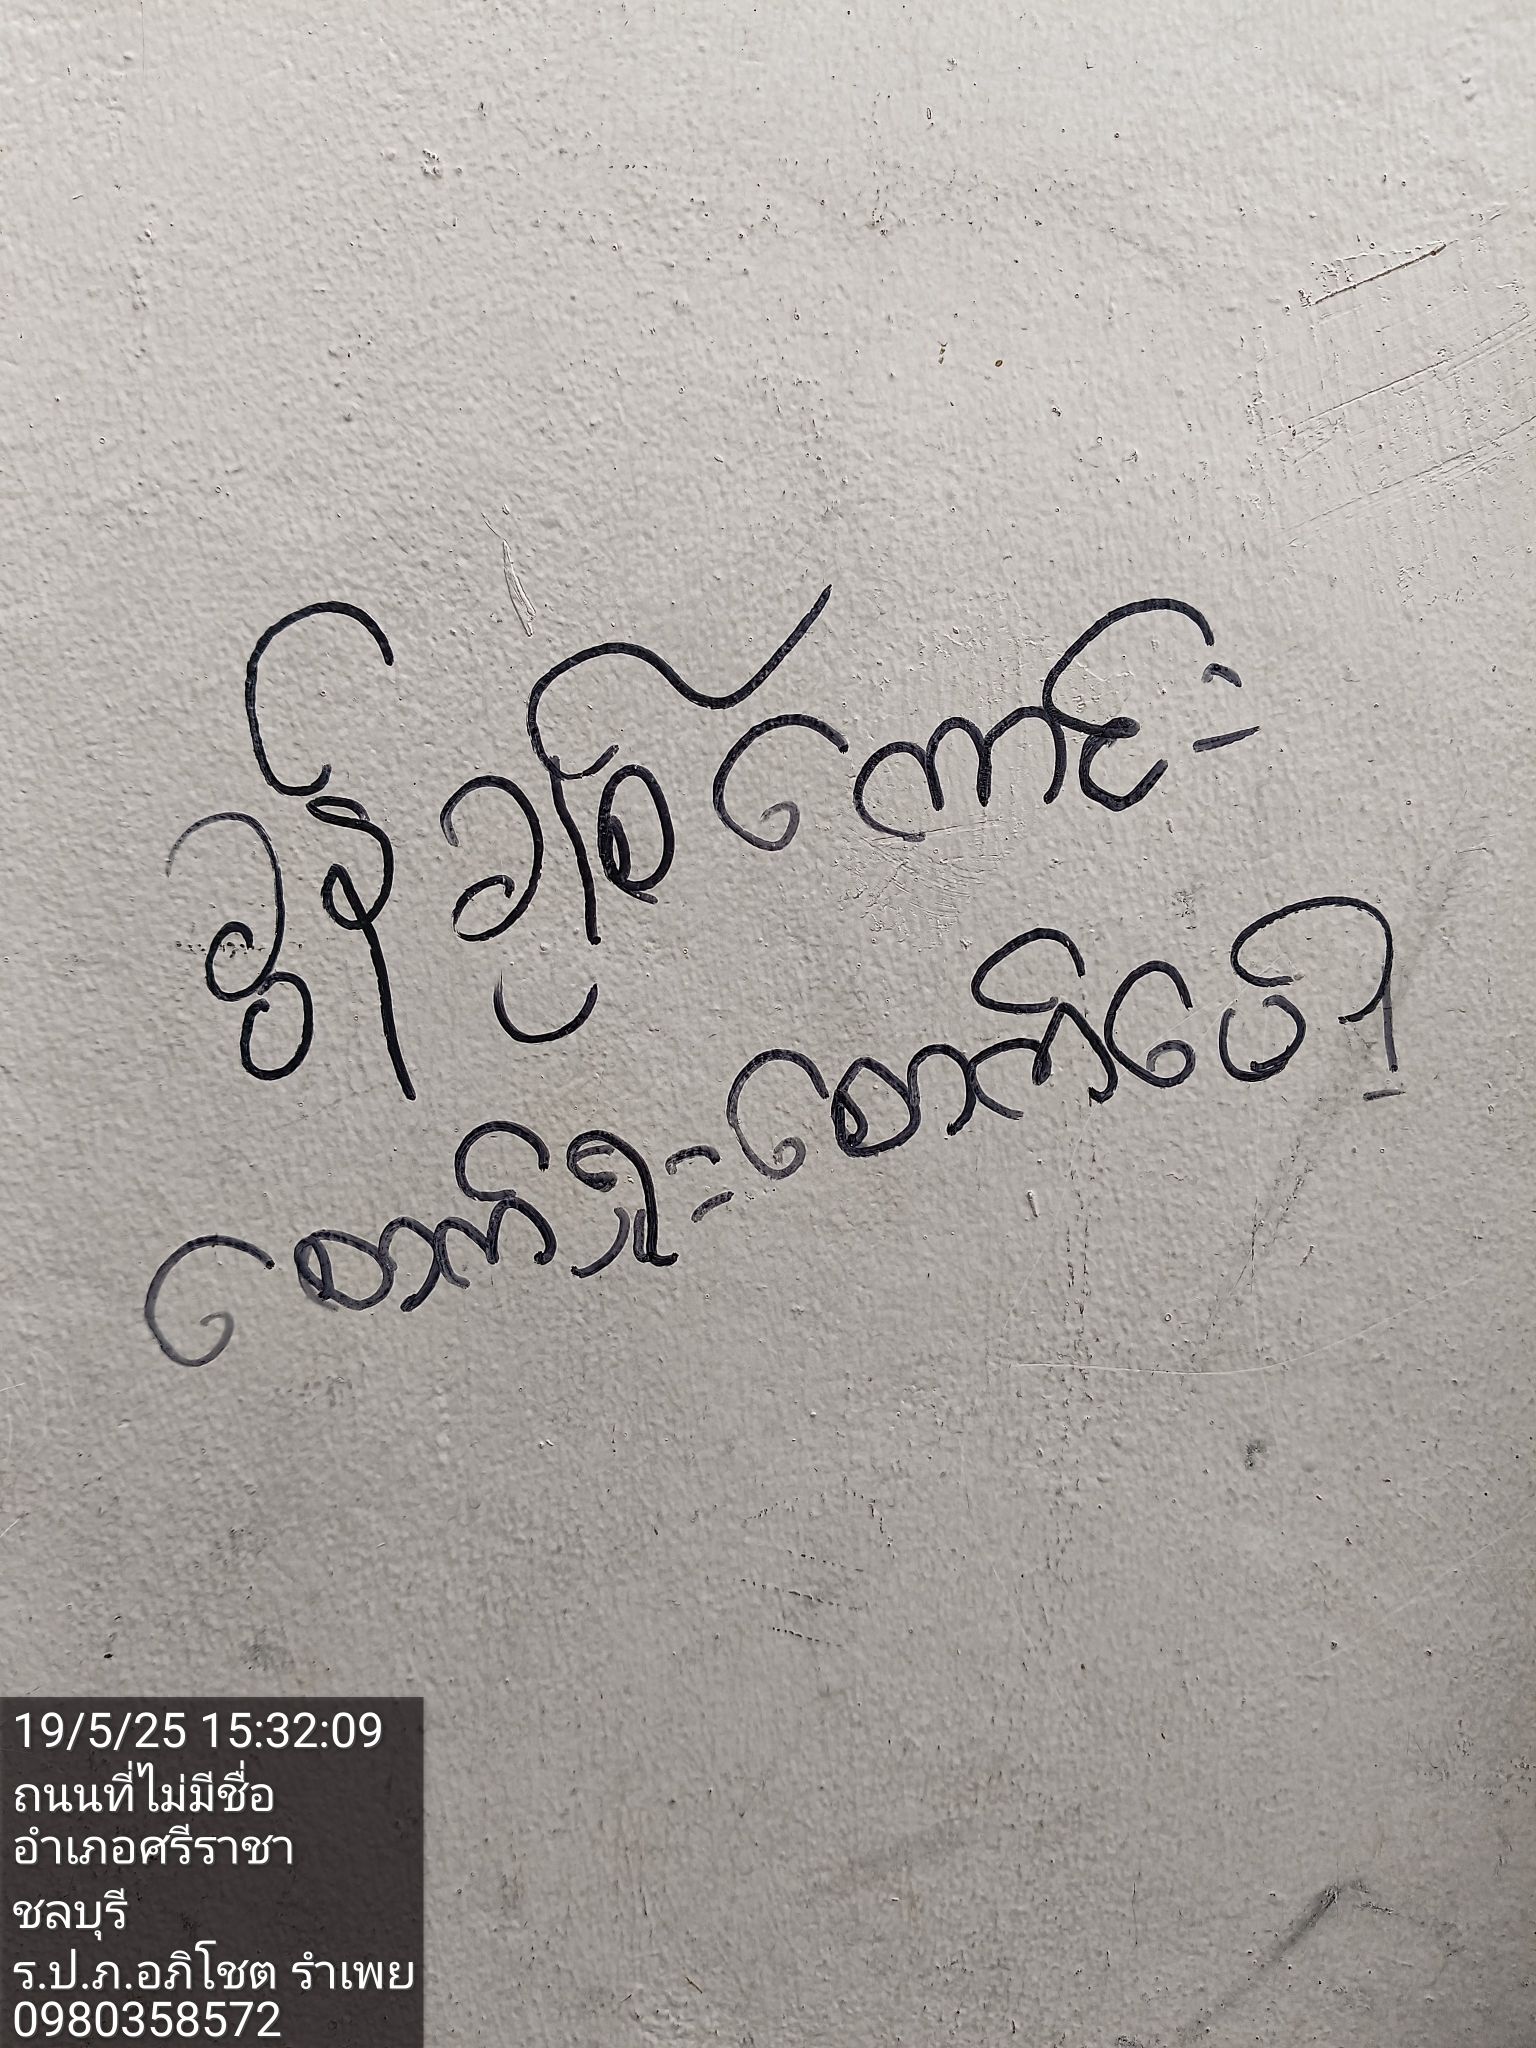 ခွန်ချစ်ကောင်း
စောက်ရူးစောက်ပေါ့
19/5/25 15:32:09
ถนนที่ไม่มีชื่อ
อำเภอศรีราชา
ชลบุรี
ร.ป.ภ.อภิโชต รำเพย
0980358572